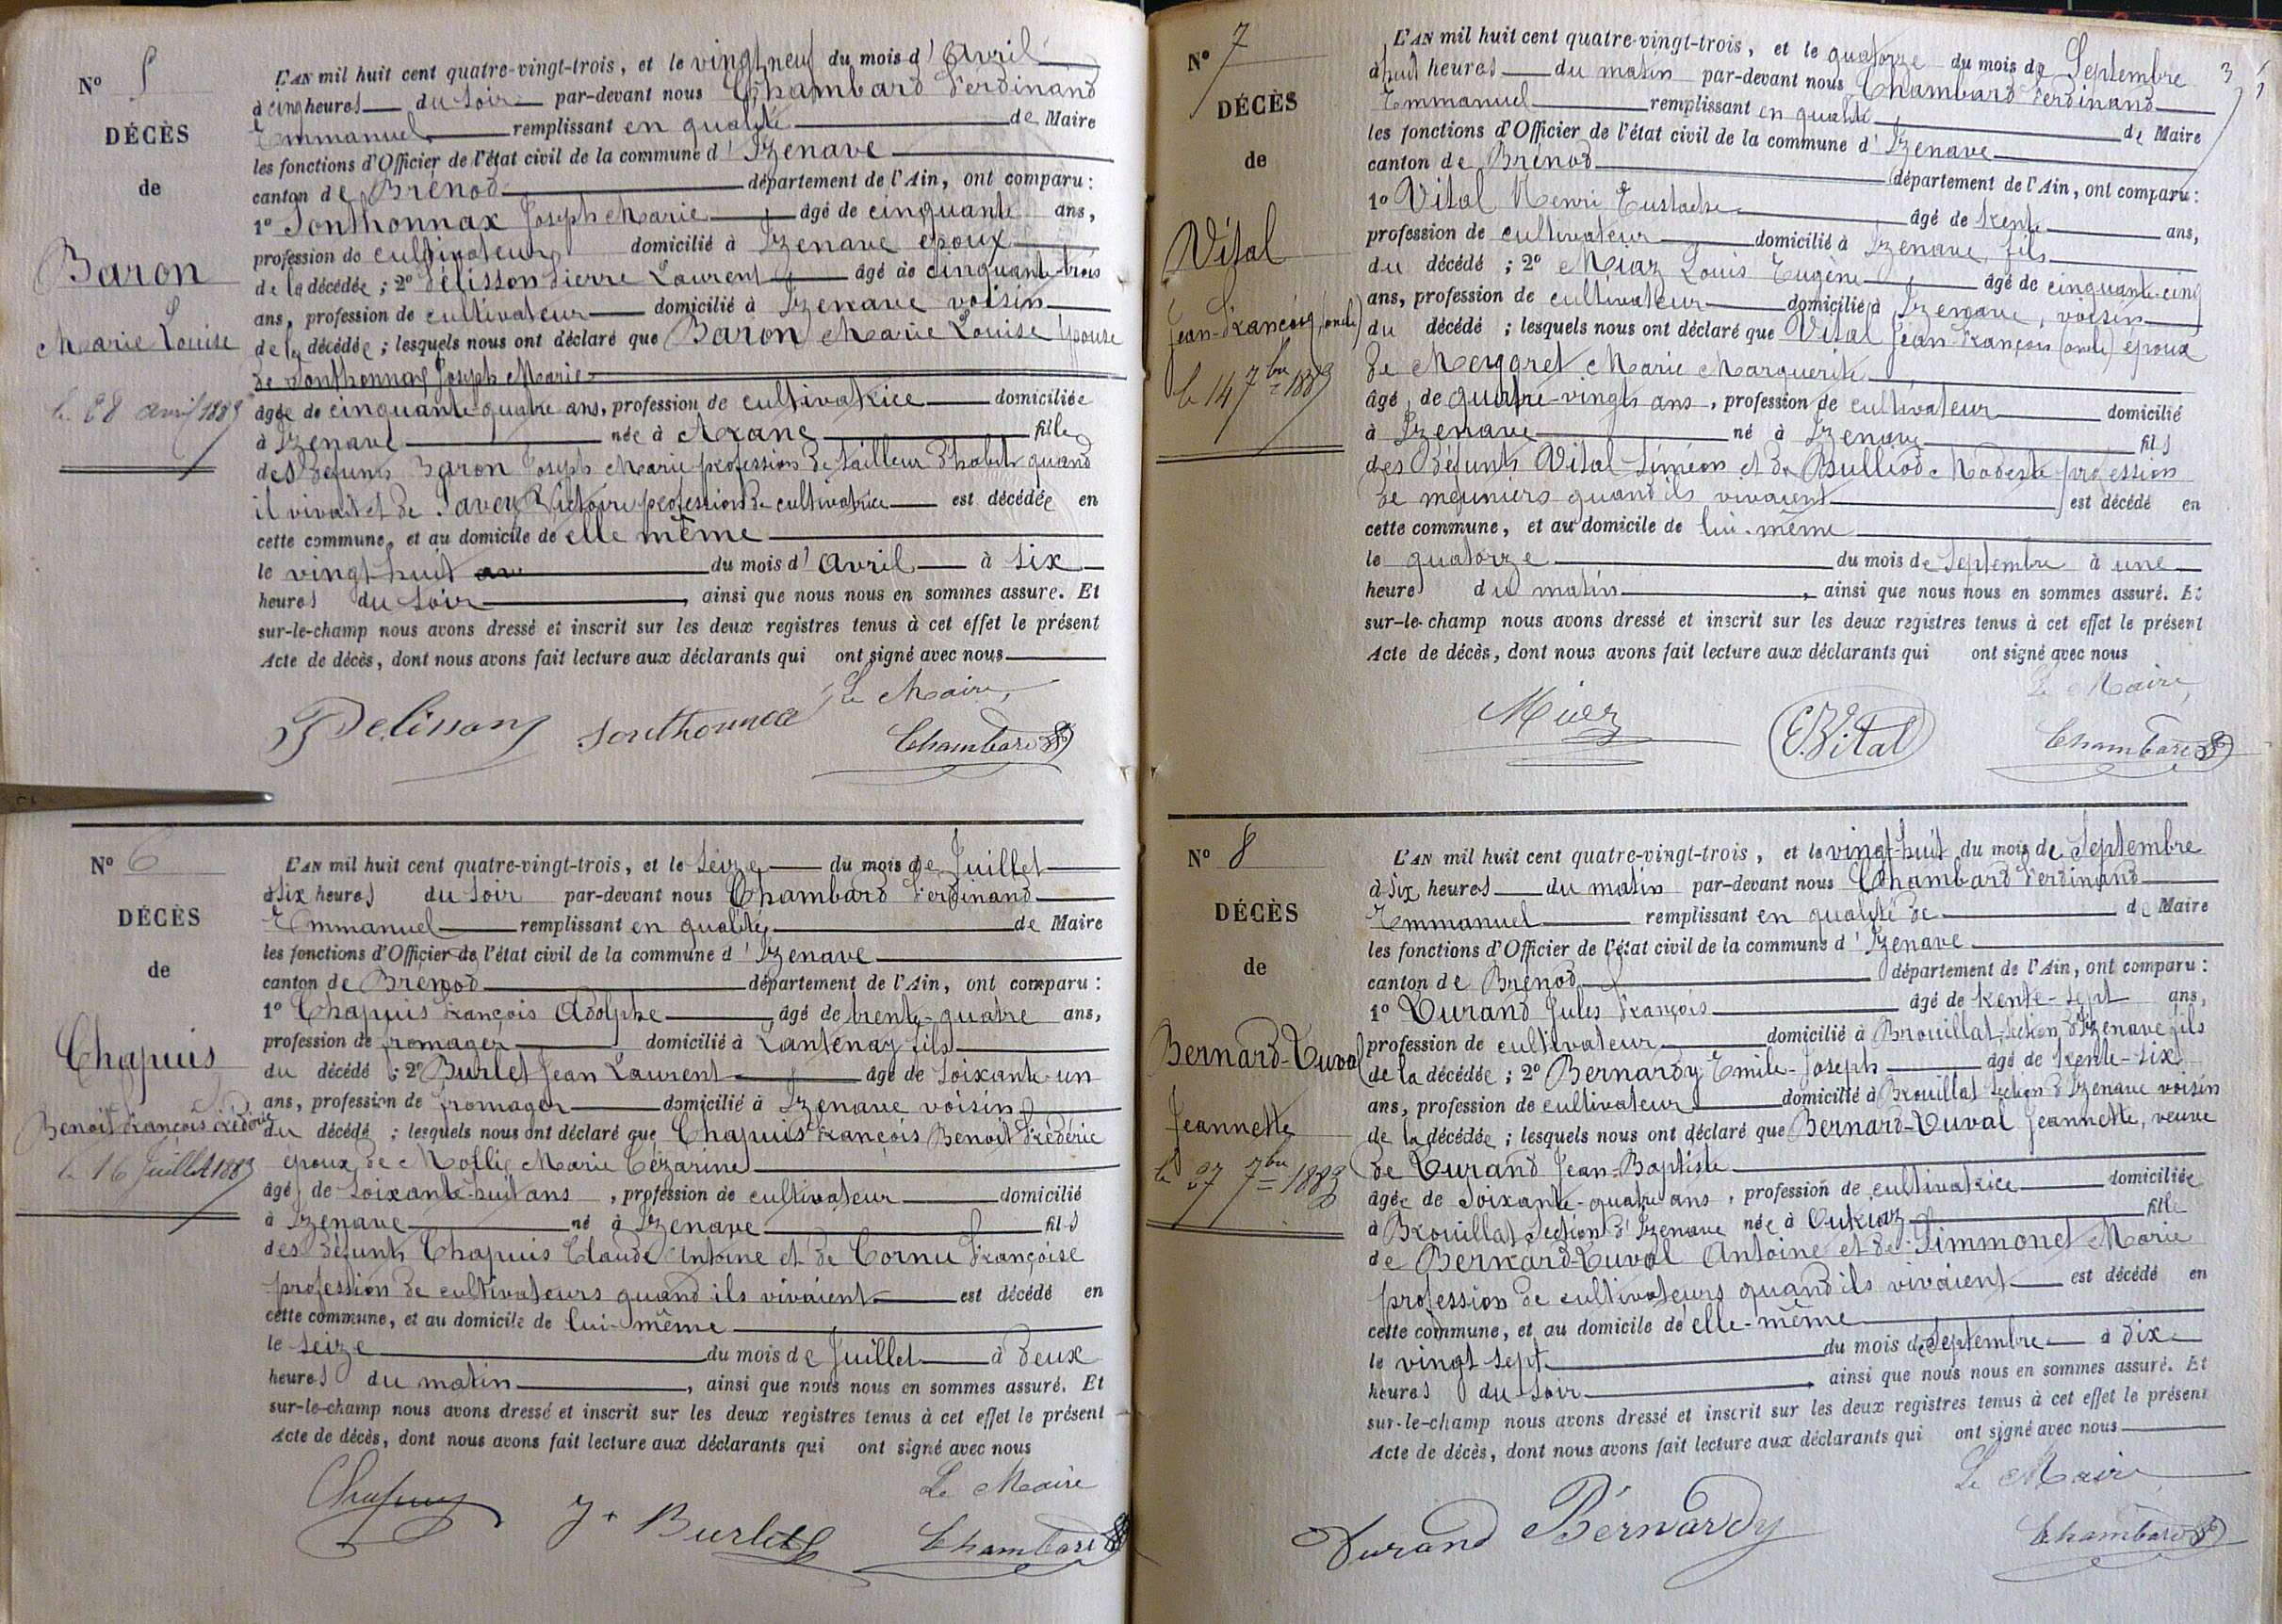 N° 5
DÉCÈS
de
Baron
Marie Louise
le 28 avril 1883
L'AN mil huit cent quatre-vingt-trois, et le vingt neuf du mois d'Avril
à cinq heures du soir par-devant nous Chambard Ferdinand
Emmanuel remplissant en qualité de Maire
les fonctions d'Officier de l'état civil de la commune d'Izenave
canton de Brénod département de l'Ain, ont comparu :
1° Sonthonnax Joseph Marie âgé de cinquante ans,
profession de cultivateur domicilié à Izenave époux
de la décédée ; 2° Pélisson Pierre Laurent âgé de cinquante-trois
ans, profession de cultivateur domicilié à Izenave voisin
de la décédée ; lesquels nous ont déclaré que Baron Marie Louise épouse
de Sonthonnax Joseph Marie
âgée de cinquante-quatre ans, profession de cultivatrice domiciliée
à Izenave née à Arane fille
des défunts Baron Joseph Marie profession de tailleur d'habits quand
il vivait et de Savey Victoire profession de cultivatrice est décédée en
cette commune, et au domicile de elle même
le vingt huit du mois d'Avril à six
heures du soir, ainsi que nous nous en sommes assuré. Et
sur-le-champ nous avons dressé et inscrit sur les deux registres tenus à cet effet le présent
Acte de décès, dont nous avons fait lecture aux déclarants qui ont signé avec nous
Le Maire,
Pelisson Sonthonnax Chambard
N° 6
DÉCÈS
de
Chapuis
Benoit François Frédéric
le 16 Juillet 1883
L'AN mil huit cent quatre-vingt-trois, et le seize du mois de Juillet
à six heures du soir par-devant nous Chambard Ferdinand
Emmanuel remplissant en qualité de Maire
les fonctions d'Officier de l'état civil de la commune d'Izenave
canton de Brenod département de l'Ain, ont comparu :
1° Chapuis François Adolphe âgé de trente-quatre ans,
profession de fromager domicilié à Lantenay fils
du décédé ; 2° Burlet Jean Laurent âgé de soixante-un
ans, profession de fromager domicilié à Izenave voisin
du décédé ; lesquels nous ont déclaré que Chapuis François Benoit Frédéric
époux de Mollie Marie Cézarine
âgé de soixante-huit ans, profession de cultivateur domicilié
à Izenave né à Izenave fils
des défunts Chapuis Claude Antoine et de Cornu Françoise
profession de cultivateurs quand ils vivaient est décédé en
cette commune, et au domicile de lui-même
le seize du mois de Juillet à deux
heures du matin, ainsi que nous nous en sommes assuré. Et
sur-le-champ nous avons dressé et inscrit sur les deux registres tenus à cet effet le présent
Acte de décès, dont nous avons fait lecture aux déclarants qui ont signé avec nous
Le Maire
Chapuis J. Burlet Chambard
3
N° 7
DÉCÈS
de
Vital
Jean-François (oncle)
le 14 7bre 1883
L'AN mil huit cent quatre-vingt-trois, et le quatorze du mois de Septembre
à huit heures du matin par-devant nous Chambard Ferdinand
Emmanuel remplissant en qualité de Maire
les fonctions d'Officier de l'état civil de la commune d'Izenave
canton de Brénod département de l'Ain, ont comparu :
1° Vital Henri Eustache âgé de trente ans,
profession de cultivateur domicilié à Izenave, fils
du décédé ; 2° Miaz Louis Eugène âgé de cinquante-cinq
ans, profession de cultivateur domicilié à Izenave, voisin
du décédé ; lesquels nous ont déclaré que Vital Jean-François (oncle) époux
de Mergoret Marie Marguerite
âgé de quatre-vingts ans, profession de cultivateur domicilié
à Izenave né à Izenave fils
des défunts Vital Siméon et de Bulliod Modeste profession
de meuniers quand ils vivaient est décédé en
cette commune, et au domicile de lui-même
le quatorze du mois de Septembre à une
heure du matin, ainsi que nous nous en sommes assuré. Et
sur-le-champ nous avons dressé et inscrit sur les deux registres tenus à cet effet le présent
Acte de décès, dont nous avons fait lecture aux déclarants qui ont signé avec nous
Le Maire,
Miaz E. Vital Chambard
N° 8
DÉCÈS
de
Bernard-Duval
Jeannette
le 27 7bre 1883
L'AN mil huit cent quatre-vingt-trois, et le vingt-huit du mois de Septembre
à six heures du matin par-devant nous Chambard Ferdinand
Emmanuel remplissant en qualité de de Maire
les fonctions d'Officier de l'état civil de la commune d'Izenave
canton de Brénod département de l'Ain, ont comparu :
1° Durand Jules François âgé de trente-sept ans,
profession de cultivateur domicilié à Brouillat, section d'Izenave fils
de la décédée ; 2° Bernardy Emile-Joseph âgé de trente-six
ans, profession de cultivateur domicilié à Brouillat section d'Izenave voisin
de la décédée ; lesquels nous ont déclaré que Bernard-Duval Jeannette, veuve
de Durand Jean-Baptiste
âgée de soixante-quatre ans, profession de cultivatrice domiciliée
à Brouillat, section d'Izenave née à Outriaz fille
de Bernard-Duval Antoine et de Simmonet Marie
profession de cultivateurs quand ils vivaient est décédé en
cette commune, et au domicile de elle-même
le vingt sept du mois de Septembre à dix
heures du soir, ainsi que nous nous en sommes assuré. Et
sur-le-champ nous avons dressé et inscrit sur les deux registres tenus à cet effet le présent
Acte de décès, dont nous avons fait lecture aux déclarants qui ont signé avec nous
Le Maire
Durand Bernardy Chambard